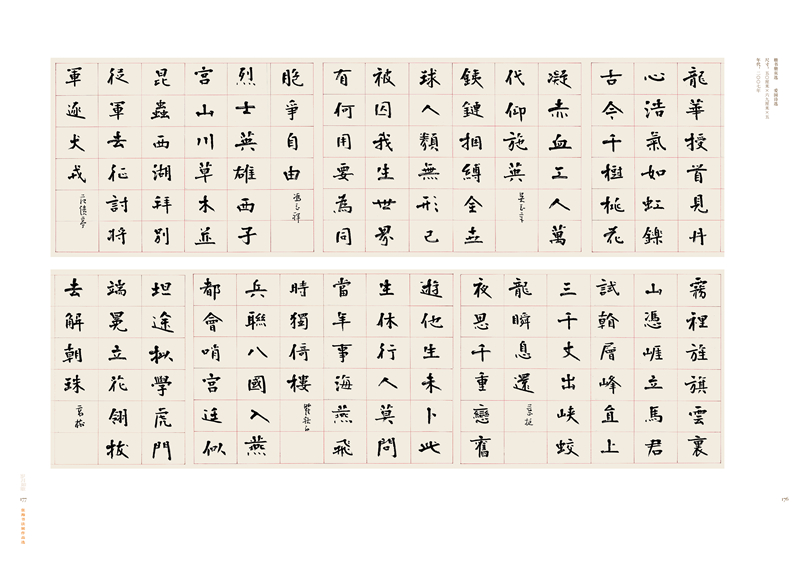 龍華授首見丹
心浩氣如虹鑠
古今千樹桃花
凝赤血工人萬
代仰施英 吴玉章
鉄鏈捆縛全
球人類無形已
被囚我生世界
有何用要為同
胞爭自由 馮玉祥
烈士英雄西子
宫山川草木並
昆蟲西湖拜别
從軍去征討將
軍逐犬戎 范绩亭
霧裡旌旗雲裏
山憑崕立馬君
試翰層峰直上
三千丈出峽蛟
龍瞬息還
夜思千重戀舊
遊他生未卜此
生休行人莫問
當年事海燕飛
時獨倚樓 瞿秋白
兵聯八國入燕
都會哨宫廷似
坦途秋學虎門
端冕立花翎拔
去解朝珠
年代：二〇〇七年
176